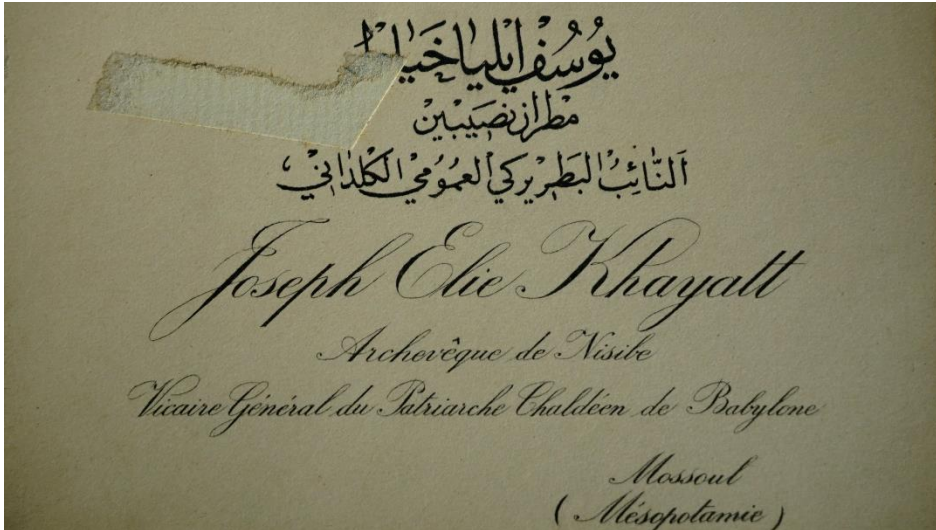 يُوسُف ايليا خَياط
مُطران نصَيبين
اَلنَّائِبُ البَطريركي العمُومي الكلداني
Joseph Elie Khayatt
Archevêque de Nisibe
Vicaire Général du Patriarche Chaldéen de Babylone
Mossoul
( Mésopotamie )